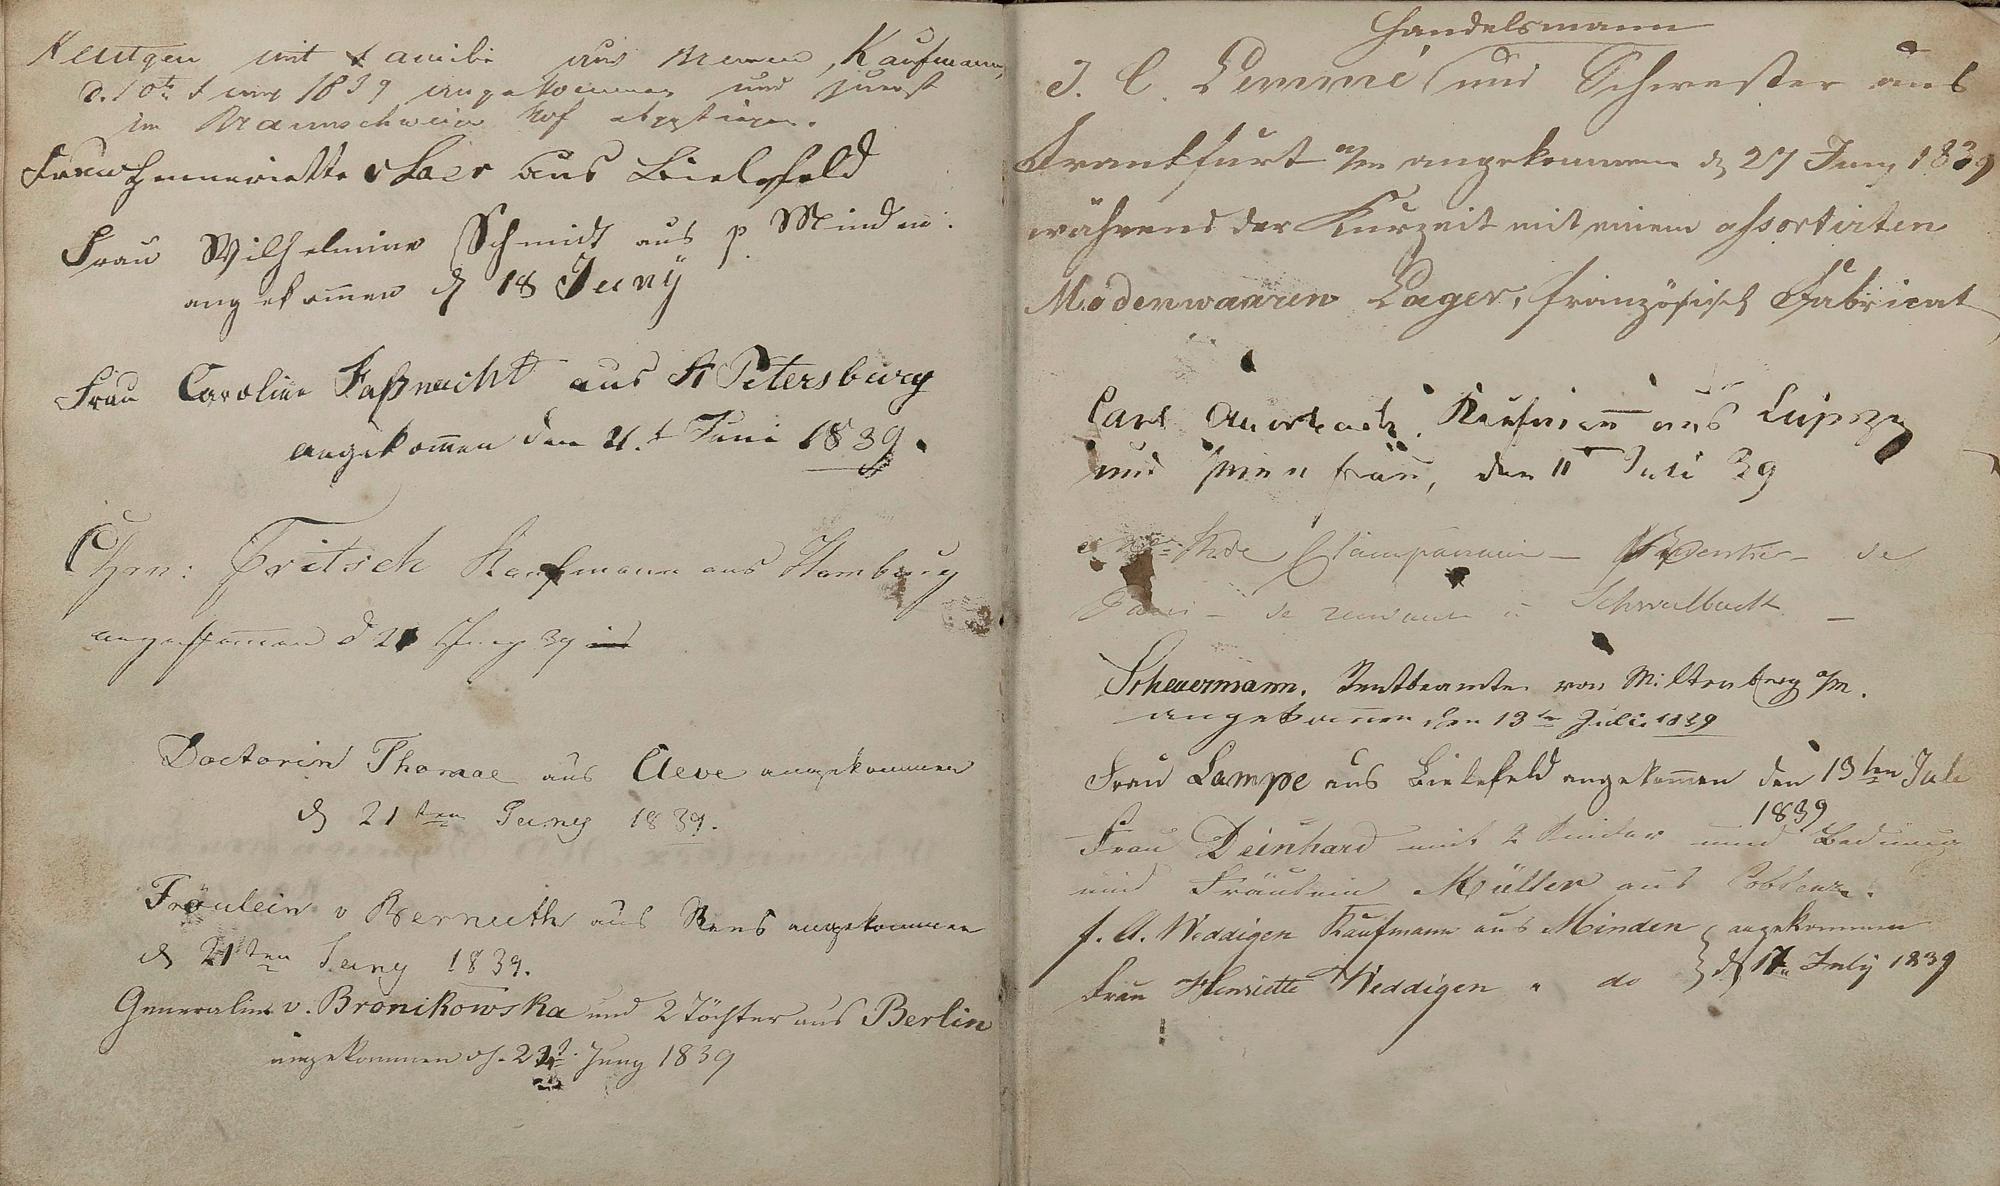 Keutgen mit Familie aus Bremen, Kaufmann,
d. 10t Juny 1839 angekommen und zuerst
im Braunschweig Hof abgestiegen.
Frau Henneriette v Laer aus Bielefeld
Frau Wilhelmine Schmidt aus p Minden.
angekom̄en d 18 Juny
Frau Caroline Faßnacht aus St Petersburg
angekom̄en den 21.t Juni 1839.
Hrn: Fritsch Kaufmann aus Hamburg
angekom̄en d 21 Juny 39
Doctorin Thomae aus Cleve angekommen
d 21ten Juny 1839.
Fräulein v Bernuth aus Rees angekommen
d 21ten Juny 1839.
Generalin v. Bronikowska und 2 Töchter aus Berlin
angekommen d. 21t. Juny 1839
Handelsmann
J. C. Lemmé und Schwester aus
Frankfurt a/m angekommen d 27 Juny 1839
während der Kurzeit mit einem assortirten
Modenwaaren Lager, französisch Fabricat
Carl Auerbach, Kaufman̄ aus Leipzig
und seine Frau, den 11 Juli 39
de
Paris - se rendant à Schwalbach -
Scheuermann, Rentbeamter von Miltenberg a/m.
angekom̄en den 13ten Juli 1839
Frau Lampe aus Bielefeld angekom̄en den 13ten Juli
1839
Frau Deinhard mit 2 Kinder und Bedienung
und Fräulein Müller aus Coblenz.
F. A. Weddigen Kaufmann aus Minden } angekommen
Frau Henriette Weddigen " do } d 17n July 1839